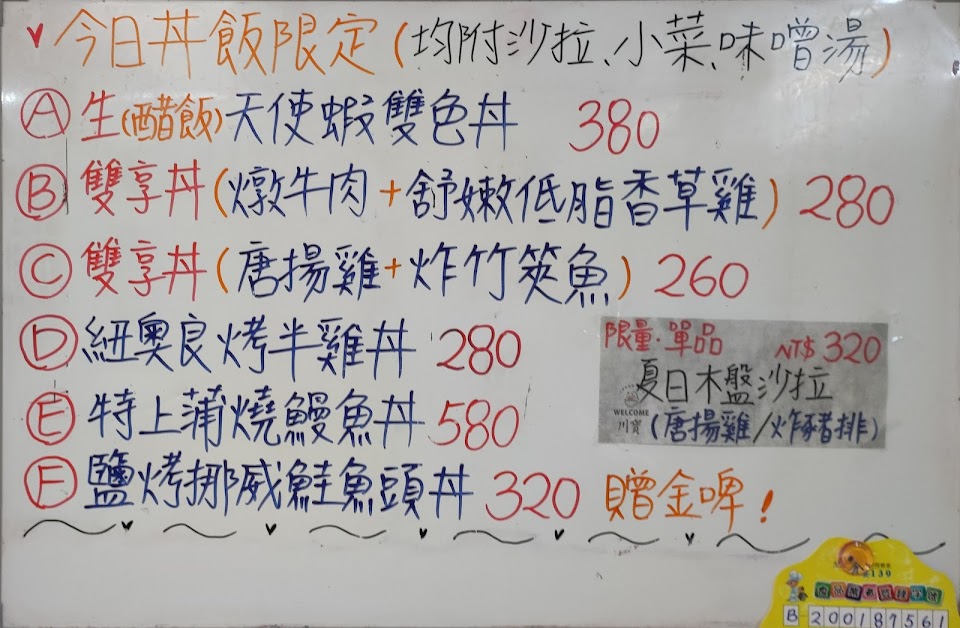 今日丼飯限定(均附沙拉、小菜、味噌湯)
A 生(醋飯)天使蝦雙色丼 380
B 雙享丼(燉牛肉+舒嫩低脂香草雞) 280
C 雙享丼(唐揚雞+炸竹筴魚) 260
D 紐奧良烤半雞丼 280
E 特上蒲燒鰻魚丼 580
F 鹽烤挪威鮭魚頭丼 320 贈金啤!
限量·單品 NT$ 320
夏日木盤沙拉
(唐揚雞/炸豬排)
WELCOME
川寶
139
B-200187561